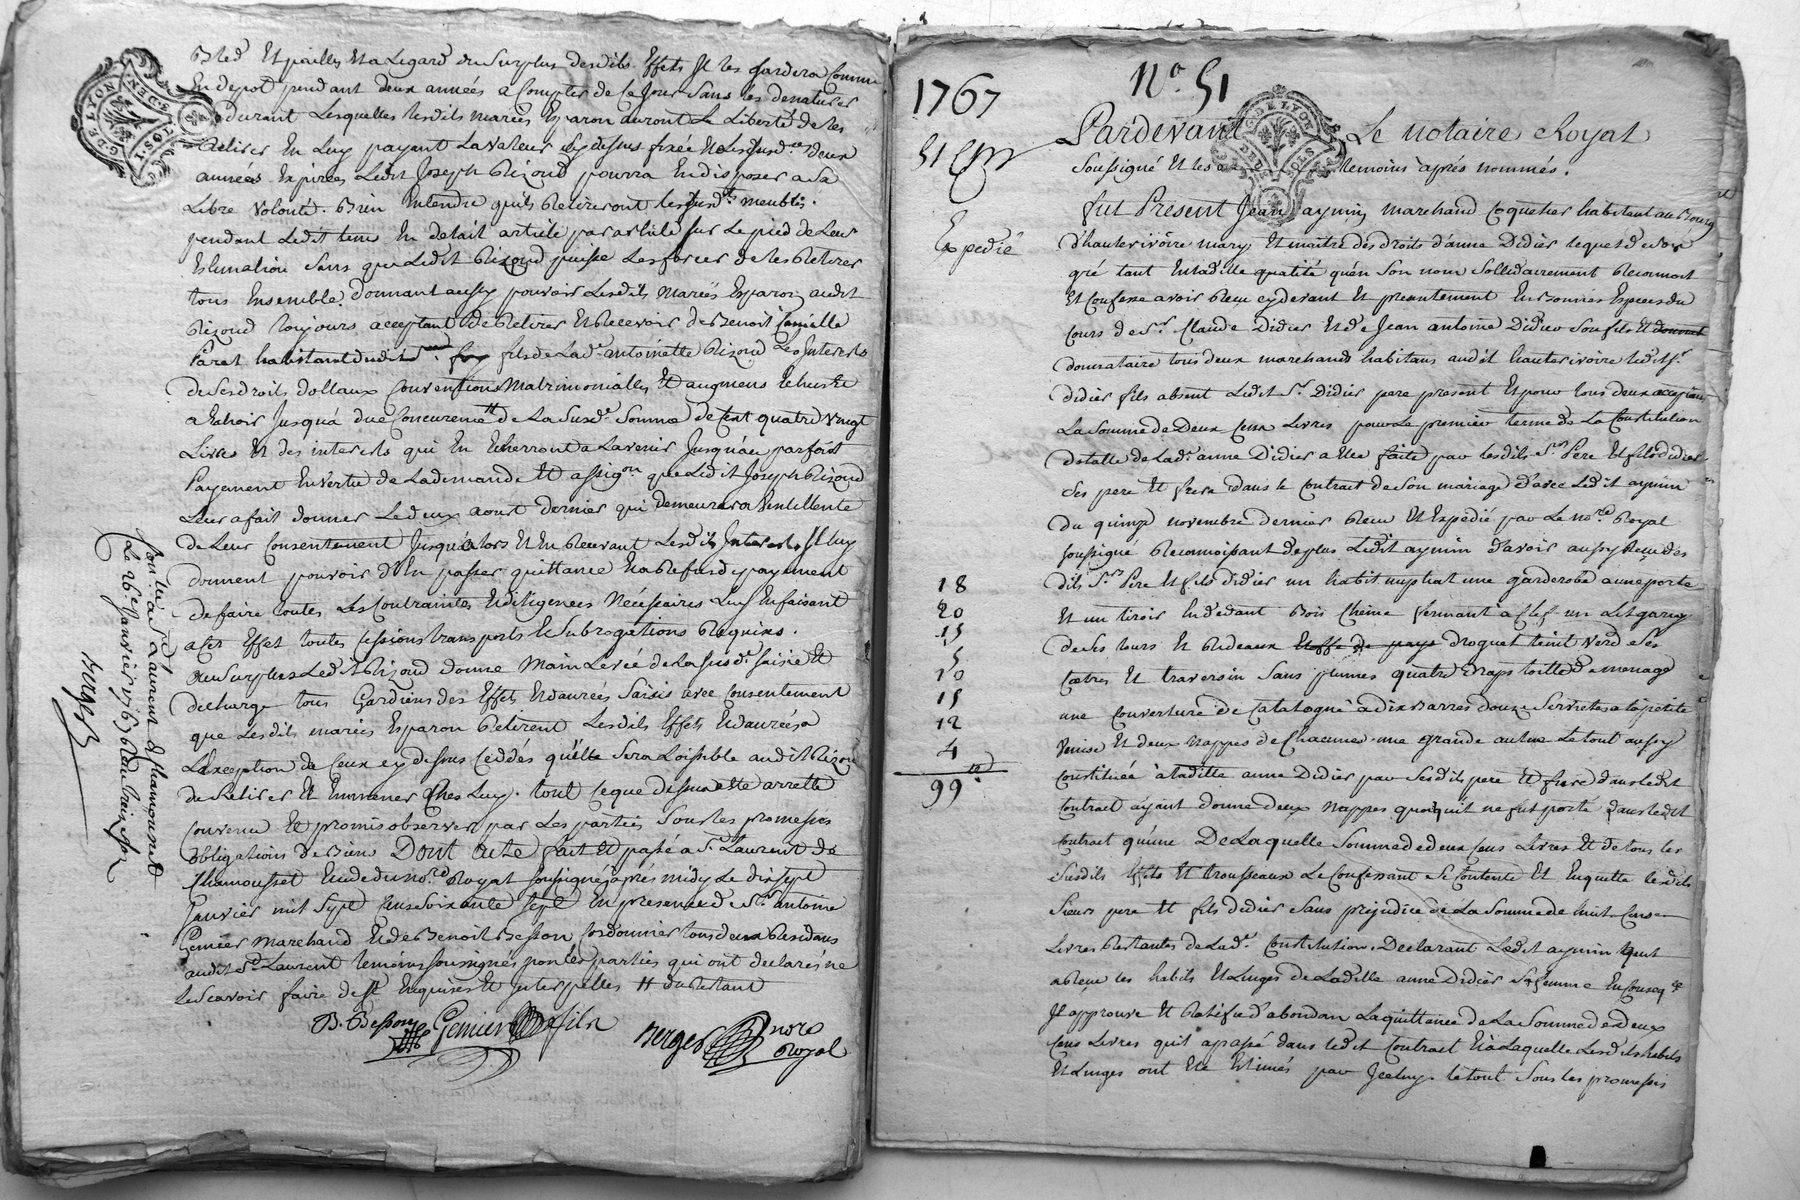 Bled Et pailles Et a Legard du Surplus desdits Effets Il les Gardera Comme
En depot pendant deux années a Compter de Ce Jour Sans les denaturer
durant Lesquelles lesdits mariés Esparon auront la Liberté de les
Retirer En Luy payant La valeur cy dessus fixée Et Lesdites deux
années Expirées Ledit Joseph Rizoud pourra En disposer a Sa
Libre volonté. Bien Entendu qu'ils Retireront les susdts meubles
pendant Ledit tems En detail article par article sur Le pied de Leur
Estimation Sans que Ledit Rizoud puisse Les forcer de les Retirer
tous Ensemble. donnant aussy pouvoir Lesdits Mariés Esparon audit
Rizoud toujours acceptant de Retirer Et Recevoir de Benoit
habitant dudit fils de Lade antoinette Rizoud Les Interets
de Ses droits dottaux Conventions Matrimonialles Et augmens
Jusqu'a due Concurence de La Susde Somme de Cent quatre vingt
Livres Et des interets qui En Echerront a Lavenir Jusqu'au parfait
Payement En vertu de La demande Et assigon que Ledit Joseph Rizoud
Leur a fait donner Le deux aoust dernier qui demeurera
de Leur Consentement Jusqu'alors Et En Recevant Lesdits Interets Il Luy
donnent pouvoir d'En passer quittance Et a Refus de payement
de faire toutes Les Contraintes Et diligences Nécessaires Luy En faisant
a Cet Effet toutes Cessions transports Et Subrogations Requises.
au Surplus Ledit Rizoud donne Main Levée de La susde saisie Et
decharge tous Gardiens des Effets Et danrées Saisis avec Consentement
que Lesdits mariés Esparon Retirent Lesdits Effets Et danrées a
L'exception de Ceux cy dessus Ceddés qu'elle Sera Loisible audit Rizoud
de Retirer Et Emmener Ches Luy. tout Ce que dessus a Eté arretté
Convenu Et promis observer par Les parties Sous Les promesses
obligations de Biens Dont acte fait Et passé a St Laurent de
Chamousset Etude du nore Royal soussigné après midy Le dix sept
Janvier mil Sept Cens Soixante Sept En presence de Sr antoine
Gemier Marchand Et de Benoit Besson Cordonnier tous deux Residans
audit St Laurent temoins soussignés non les parties qui ont declaré ne
Le Scavoir faire de ce Enquises Et Interpellés du Restant
B. Besson Gemier fils
Berger nore
Royal
Conlle a St Laurent de Chamousset
Le 26e Janvier 1767
Berger
1767
No. 51
51
Expedié
18
20
15
5
10
15
12
4
99
Pardevant Le notaire Royal
Soussigné Et les temoins après nommés.
fut Present Jean aymin marchand Coquetier habitant au Bourg
d'hauterivoire mary Et maitre des droits d'anne Didier lequel de
gré tant En ladite qualité qu'en Son nom Sollidairement Reconnoit
Et Confesse avoir Reçu cy devant Et presentement En Bonnes Especes du
Cours de Sr Claude Didier Et de Jean antoine Didier Son fils Et
donnataire tous deux marchands habitans audit hauterivoire ledit Sr
didier fils absent Ledit Sr Didier pere present Et pour tous deux acceptant
La Somme de Deux Cens Livres pour Le premier terme de La Constitution
dotalle de Lade anne Didier a Elle faite par lesdits Srs Pere Et fils didier
Ses pere Et frere dans le Contrat de Son mariage d'avec Ledit aymin
du quinze novembre dernier Reçu Et Expédié par Le nore Royal
soussigné Reconnoissant de plus Ledit aymin d'avoir aussy Reçu des
dits Srs Pere Et fils didier un habit nuptial une garderobe a une porte
Et un tiroir En dedant Bois Chêne fermant a Clef un Lit garny
de Ses tours Et Rideaux Etoffe de pays droguet teint verd
Et traversin Sans plumes quatre draps toille de menage
une Couverture de Catalogne a dix Barres douze Serviettes a la petite
Venise Et deux nappes de Chacune une grande autre Le tout aussy
Constitué a ladite anne Didier par Sesdits pere Et frere dans ledit
Contract ayant donné deux nappes quoiqu'il ne fut porté dans ledit
Contract qu'une De Laquelle Somme de deux Cens Livres Et de tous les
Susdits Effets Et trousseaux Le Confessant Se Contente Et En quitte lesdits
Sieurs pere Et fils didier Sans prejudice de La Somme de huit Cens
Livres Restantes de Lade Constitution. Declarant Ledit aymin quil
a Reçu les habits Et Linges de Ladite anne Didier Sa femme En Conseqce
Il approuve Et Ratifie d'abondan La quittance de La Somme de deux
Cens Livres qu'il a passé dans ledit Contract Et a Laquelle Lesdits habits
Et Linges ont Eté Estimés par Iceluy. le tout Sous les promesses